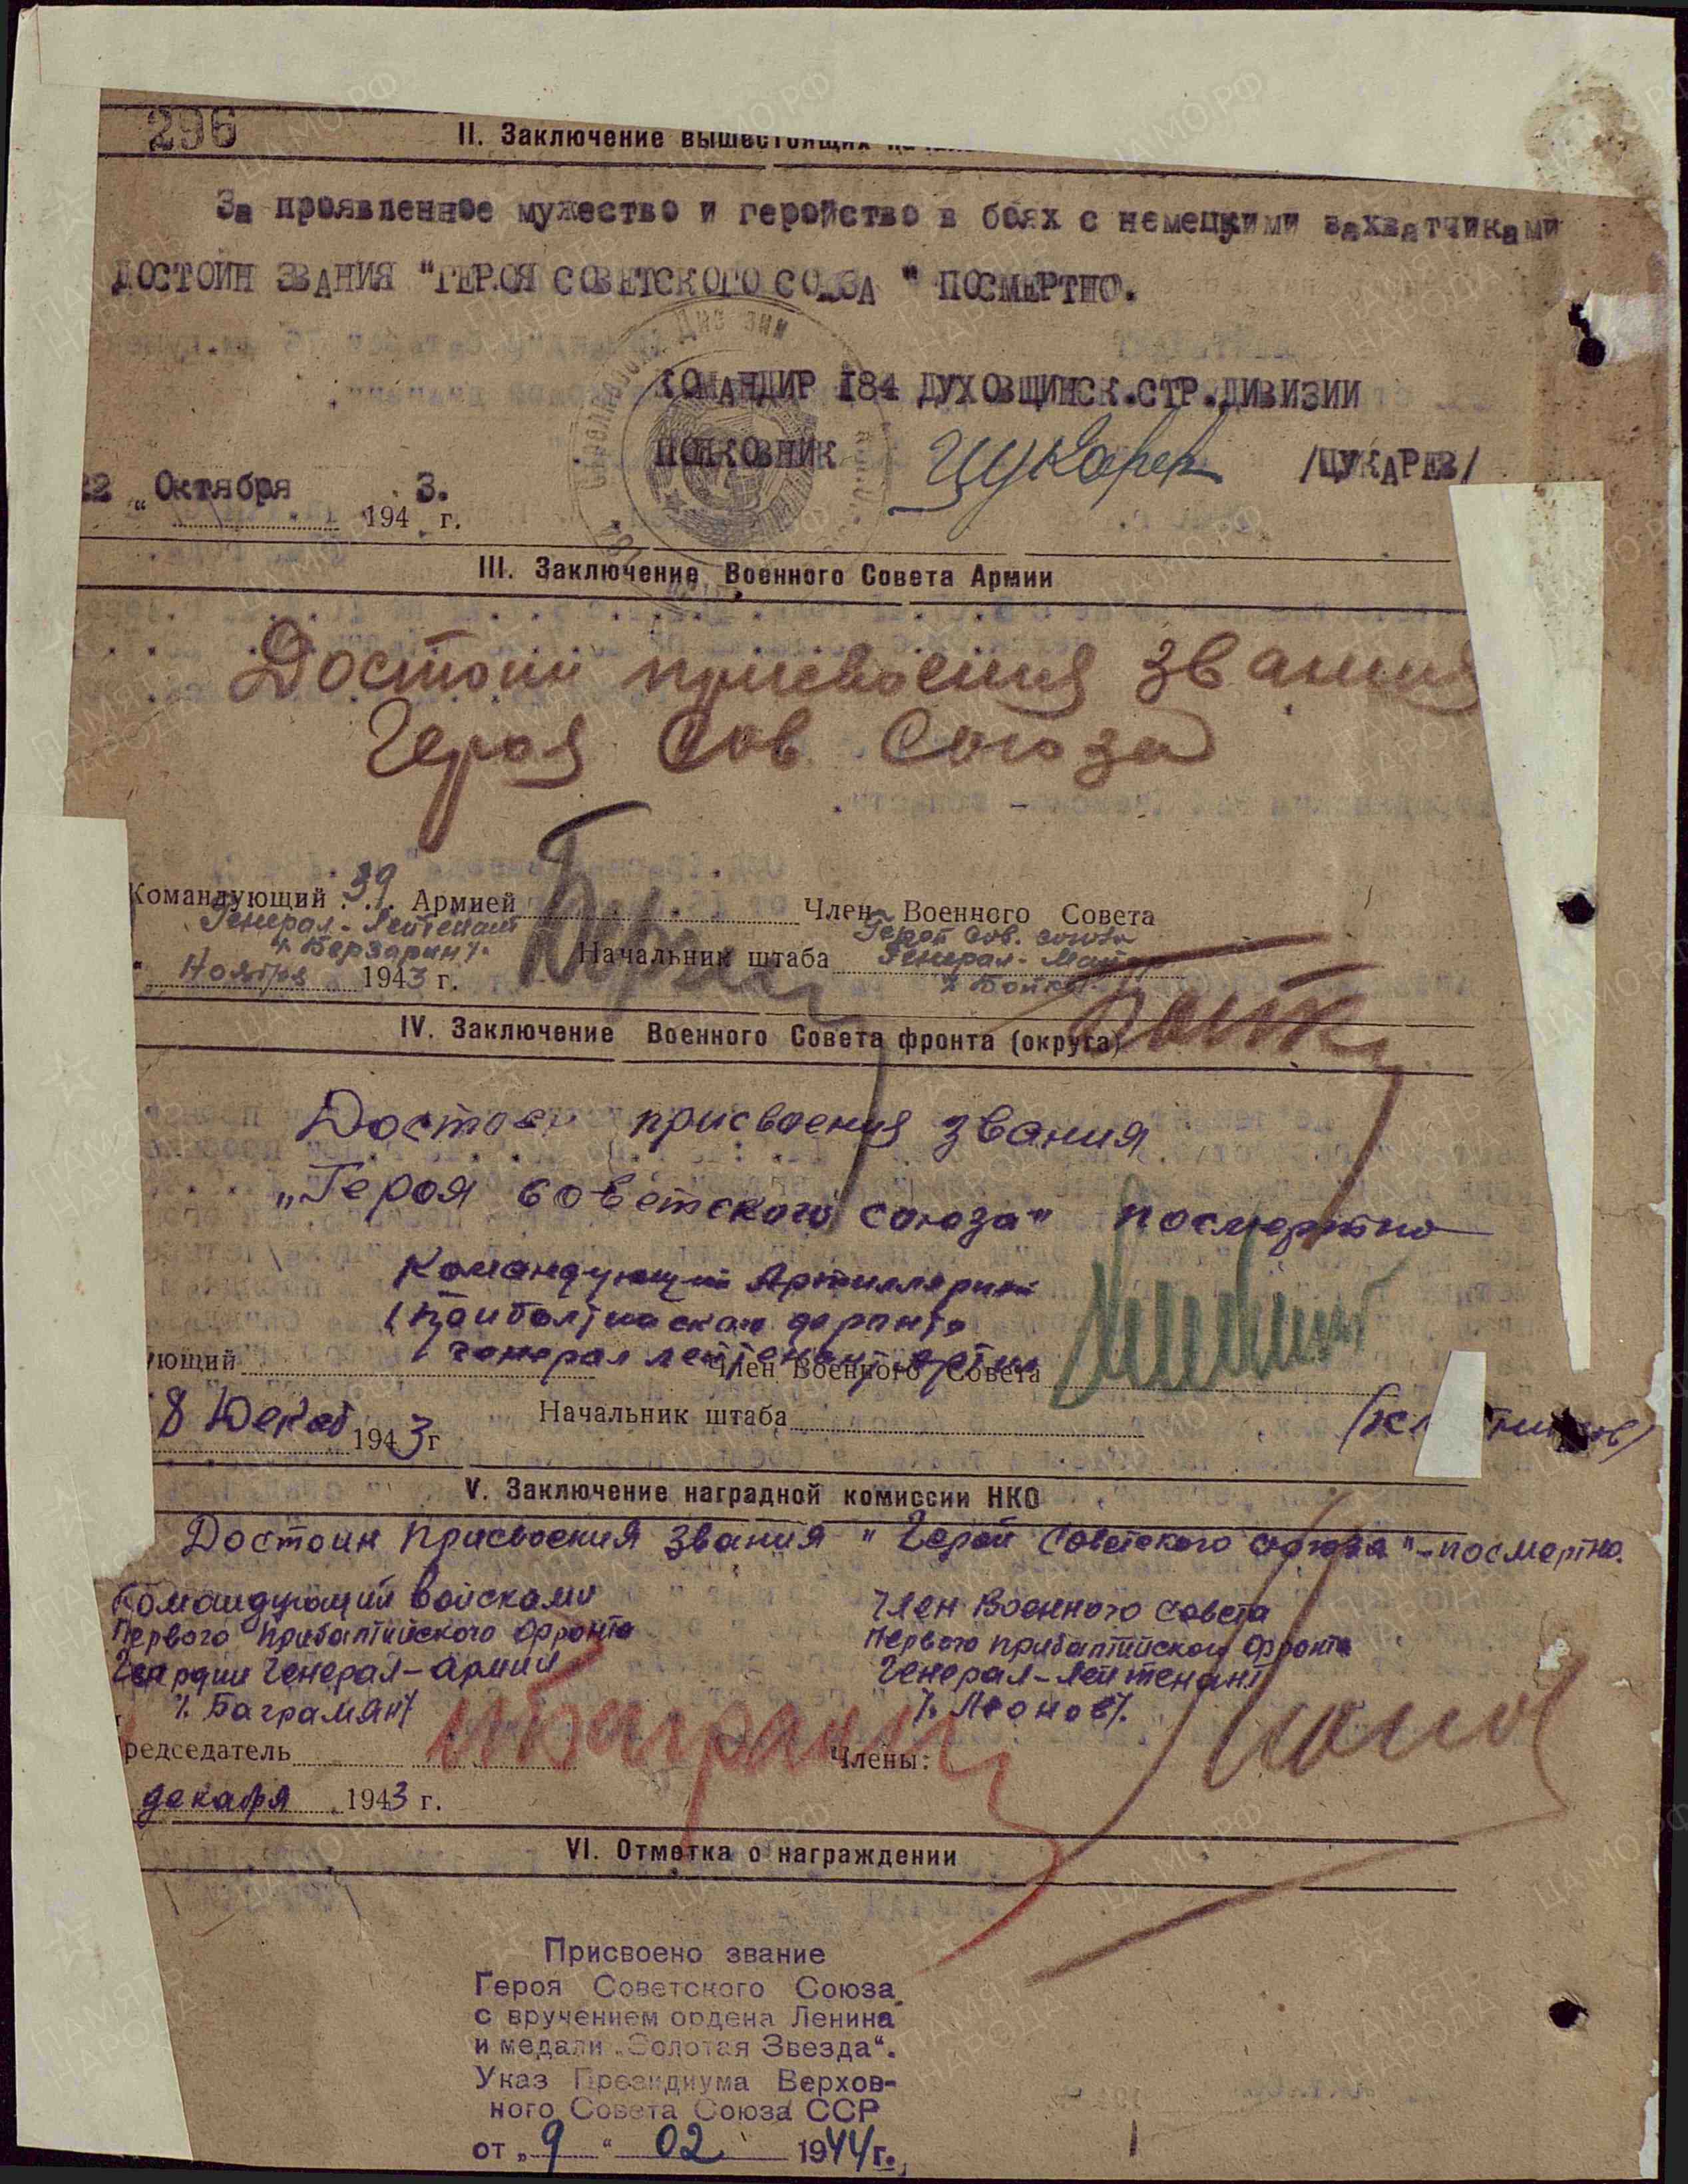 296
II. Заключение вышестоящих
За проявленное мужество и геройство в боях с немецкими захватчиками
ДОСТОИН ЗВАНИЯ "ГЕРОЯ СОВЕТСКОГО СОЮЗА" ПОСМЕРТНО.
КОМАНДИР 184 ДУХОВЩИНСК.СТР.ДИВИЗИИ
ПОЛКОВНИК Цукарев /ЦУКАРЕВ/
22 „Октября 1943. г.
III. Заключение Военного Совета Армии
Достоин присвоения звания
Героя Сов Союза
Командующий 39 Армией Член Военного Совета
Генерал-Лейтенант Герой Сов. союза
/. Берзарин /. Начальник штаба Генерал-Майор
Ноября 1943 г. /. Бойко
IV. Заключение Военного Совета фронта (округа)
Достоин присвоения звания
„Героя Советского союза" посмертно
Командующий Артиллерии
Прибалтийского фронта
генерал лейтенант
ующий Член Военного Совета
8 Декаб 1943 г Начальник штаба
V. Заключение наградной комиссии НКО
Достоин присвоения звания "Герой Советского союза"-посмертно.
Командующий войсками Член Военного совета
Первого Прибалтийского фронта Первого прибалтийского фронта
Генерал-армии Генерал-лейтенант
/. Баграмян/ /. Леонов/.
редседатель Члены:
декабря 1943 г.
VI. Отметка о награждении
Присвоено звание
Героя Советского Союза
с вручением ордена Ленина
и медали „Золотая Звезда".
Указ Президиума Верхов-
ного Совета Союза ССР
от „9" 02 1944г.